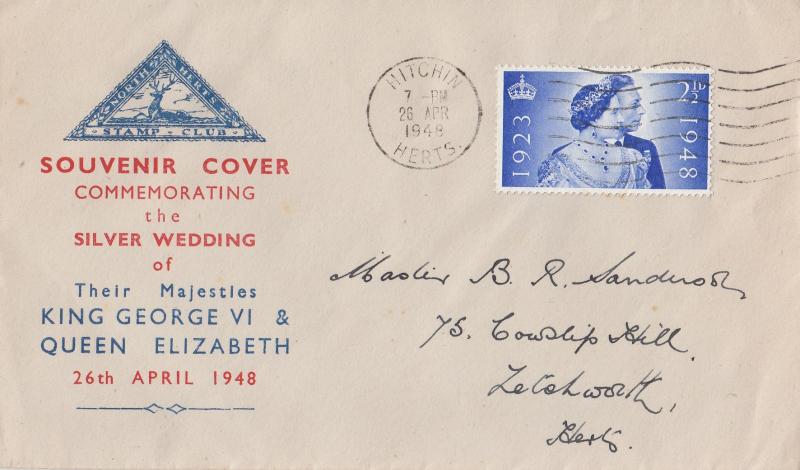 NORTH HERTS
STAMP - CLUB
SOUVENIR COVER
COMMEMORATING
the
SILVER WEDDING
of
Their Majesties
KING GEORGE VI &
QUEEN ELIZABETH
26th APRIL 1948
HITCHIN
7 - PM
26 APR
1948
HERTS.
1923
2½D
1948
Master B. R. Sanderson,
75. Cowslip Hill.
Letchworth,
Herts.